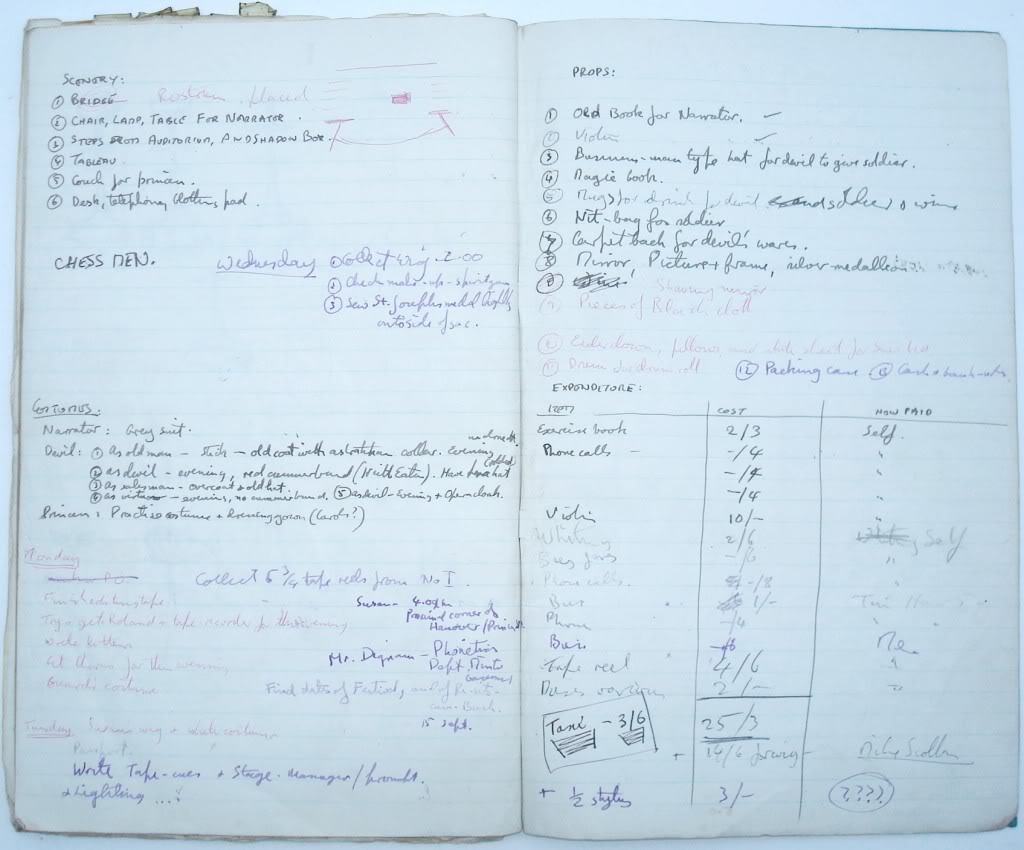 SCENERY:
① BRIDGE Rostrum placed
② CHAIR, LAMP, TABLE FOR NARRATOR.
③ STEPS FROM AUDITORIUM, AND SHADOW BOX.
④ TABLEAU.
⑤ Couch for princess.
⑥ Desk, telephone, blotting pad.
CHESS MEN.
Wednesday ① Collect wig. 2.00
② Check make-up - spirit gum
③ Sew St. Josephs medal
outside of sac.
COSTUMES:
Narrator: Grey suit.
Devil: ① As old man - stick - old coat with astrakhan collar. evening
② as devil - evening, red cummerbund (Keith Eaton). Have hat
③ as salesman - overcoat + old hat.
④ as virtuoso - evening, no cummerbund. ⑤ as devil - Evening + Opera cloak.
Princess: Practise costume + dressing gown (Carols?)
Monday
Collect 5 3/4 tape reels from No I.
Finish editing tape
Susan - 4.00pm
Try + get Roland + tape recorder for this evening
Round corner of
Hanover/Princes St.
Write letters
Mr. Dignam - Phonetics
Dept, Minto
for this evening
costume
Find dates of Festival, end of
15 Sept.
Tuesday Susan's wig + costume
Passport.
Write Tape-cues + Stage-Manager/prompt.
+ Lighting ....
PROPS:
① Old Book for Narrator. ✓
② Violin ✓
③ Business-man type hat for devil to give soldier.
④ Magic book.
⑤ Mugs for drink for devil and soldier + wine
⑥ Kit-bag for soldier
⑦ Carpet back for devil's wares.
⑧ Mirror, Picture + frame, silver medallion
Shaving mirror
⑨ Pieces of Black cloth
⑩ Eiderdown, pillows, and white sheet for
⑪ Drum for drum roll ⑫ Packing case ⑬ Cash + bank-notes
EXPENDITURE:
ITEM COST HOW PAID
Exercise book 2/3 Self.
Phone calls - -/4 "
-/4 "
-/4 "
Violin 10/- "
Whiting 2/6 Self
Bus fares -/6 "
Phone calls. -/8 "
Bus 1/-
Phone -/4
Bus -/6 Me
Tape reel 4/6 "
Buses various 2/- "
Taxi - 3/6
25/3
+ 14/6 for wig -
+ 1/2 stylus 3/- (????)